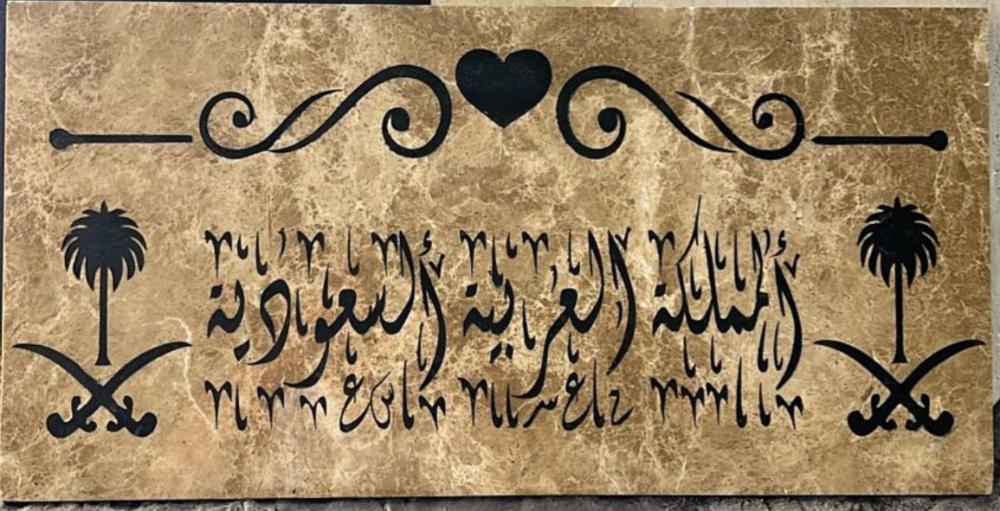 ألمملكة العربية ألسعودية